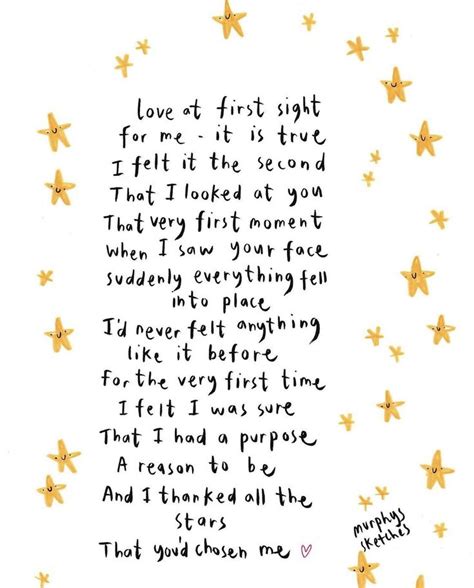 Love at first sight
for me - it is true
I felt it the second
That I looked at you
That very first moment
When I saw your face
suddenly everything fell
into place
I'd never felt anything
like it before
For the very first time
I felt I was sure
That I had a purpose
A reason to be
And I thanked all the
stars
That you'd chosen me ♡
murphys
sketches